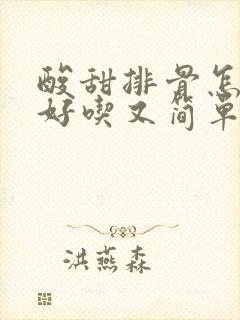 酸甜排骨怎
好喫又简单
洪燕森